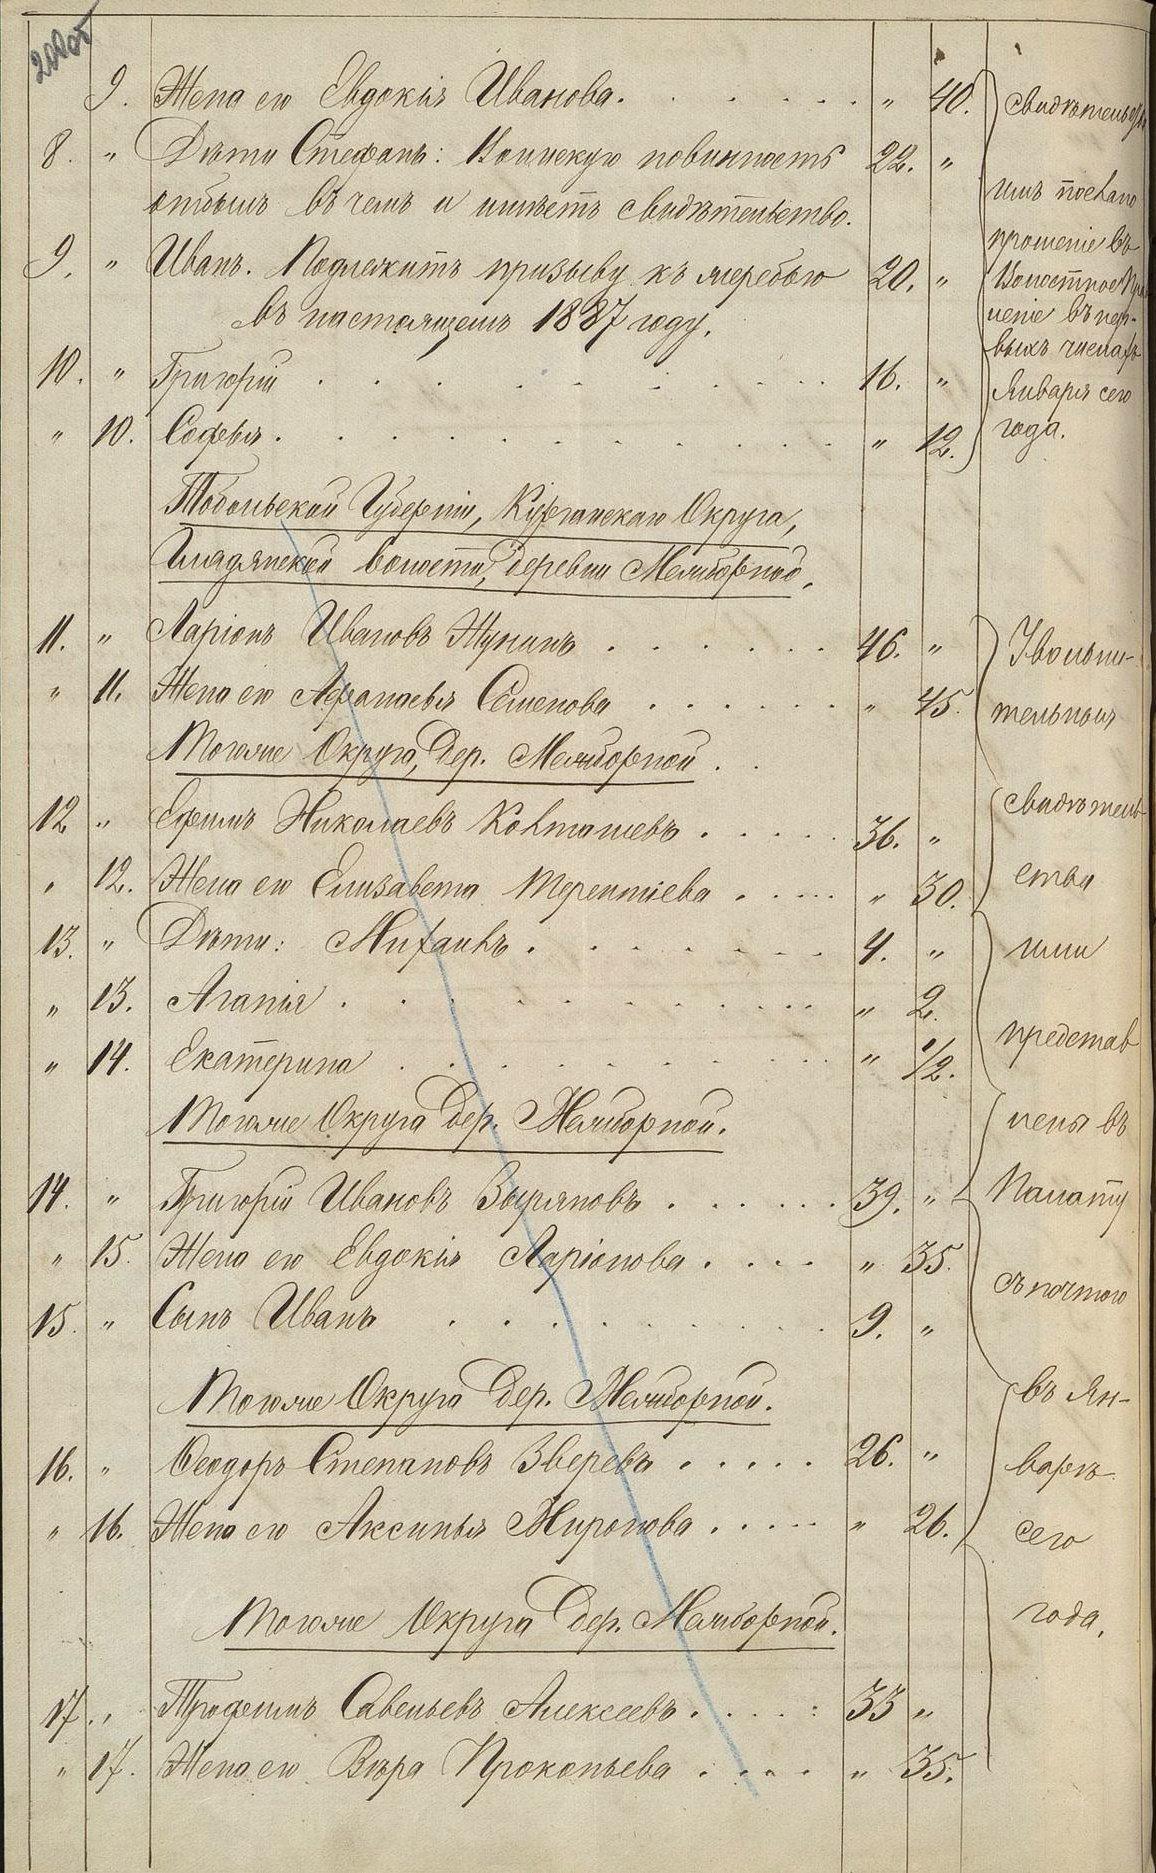 200об
9. Жена его Евдокія Иванова. „ 40.
8. „ Дѣти Стефанъ: Воинскую повинность 22. „
отбылъ въ чемъ и имѣетъ свидѣтельство.
9. „ Иванъ. Подлежитъ призыву къ жеребью 20. „
въ настоящемъ 1887 году.
10. „ Григорій 16. „
„ 10. Софья. „ 12.
свидѣтельст
имъ послано
прошеніе въ
Волостное Прав
леніе въ пер-
выхъ числахъ
Января сего
года.
Тобольской Губерніи, Курганскаго Округа,
Гладянской волости, деревни Межборной.
11. „ Ларіонъ Ивановъ Жунинъ 46. „
„ 11. Жена его Афанасья Семенова „ 45.
Тогоже Округа, Дер. Межборной
12 „ Ефимъ Николаевъ Ковташевъ 36. „
„ 12. Жена его Елизавета Терентьева „ 30.
13. „ Дѣти: Михаилъ. 4. „
„ 13. Агапія „ 2.
„ 14. Екатерина „ 1/2.
Тогоже Округа Дер. Межборной.
14. „ Григорій Ивановъ Зыряновъ 39. „
„ 15. Жена его Евдокія Ларіонова „ 35.
15. „ Сынъ Иванъ 9. „
Тогоже Округа Дер. Межборной.
16. „ Ѳеодоръ Степановъ Зверевъ 26. „
„ 16. Жена его Аксинья Миронова „ 26.
Тогоже Округа Дер. Межборной.
17. „ Трофимъ Савельевъ Алексеевъ 33 „
„ 17. Жена его Вѣра Прокопьева „ 35.
Увольни-
тельныя
свидѣтель-
ства
ими
представ
лены въ
Палату
съ почтою
въ Ян-
варѣ
сего
года.